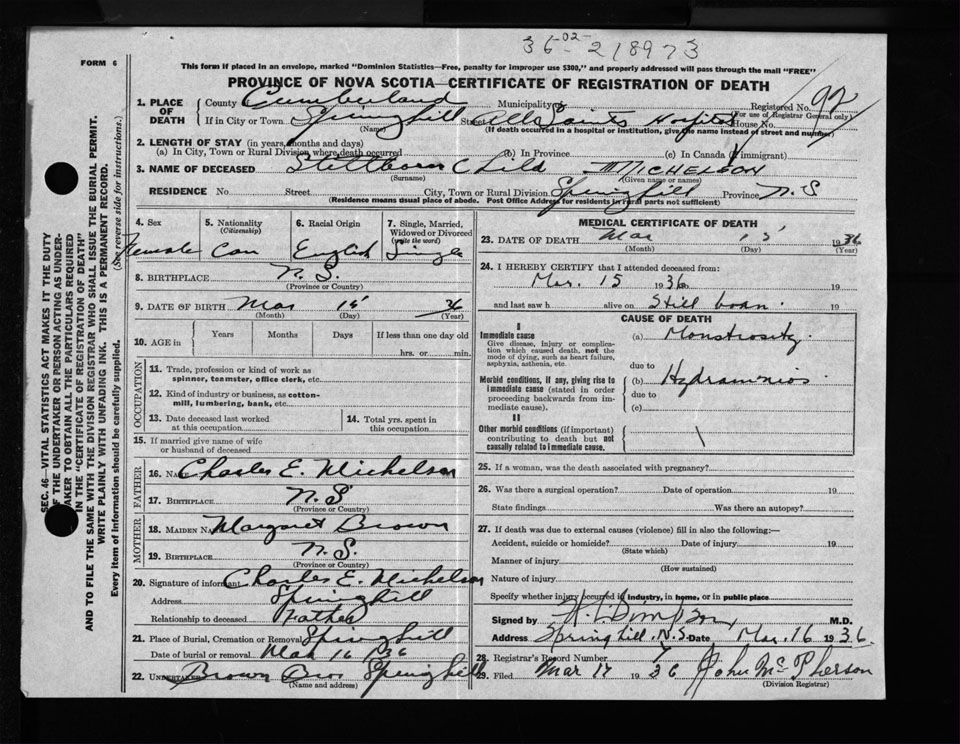 36-02-218973
FORM 6
This form if placed in an envelope, marked "Dominion Statistics—Free, penalty for improper use $300," and properly addressed will pass through the mail "FREE"
PROVINCE OF NOVA SCOTIA—CERTIFICATE OF REGISTRATION OF DEATH
1. PLACE OF DEATH County Cumberland Municipality of Registered No. 92
(For use of Registrar General only)
If in City or Town Springhill Street All Saints Hospital House No.
(Name) (If death occurred in a hospital or institution, give the name instead of street and number)
2. LENGTH OF STAY (in years, months and days)
(a) In City, Town or Rural Division where death occurred (b) In Province (c) In Canada (if immigrant)
3. NAME OF DECEASED Stillborn Child MICHELSON
(Surname) (Given name or names)
RESIDENCE No. Street City, Town or Rural Division Springhill Province N.S
(Residence means usual place of abode. Post Office Address for residents in rural parts not sufficient)
4. Sex 5. Nationality (Citizenship) 6. Racial Origin 7. Single, Married, Widowed or Divorced (write the word)
Female Can English Single
8. BIRTHPLACE N.S.
(Province or Country)
9. DATE OF BIRTH Mar 15 36
(Month) (Day) (Year)
10. AGE in Years Months Days If less than one day old
hrs. or min.
OCCUPATION
11. Trade, profession or kind of work as spinner, teamster, office clerk, etc.
12. Kind of industry or business, as cotton-mill, lumbering, bank, etc.
13. Date deceased last worked at this occupation
14. Total yrs. spent in this occupation
15. If married give name of wife or husband of deceased
FATHER
16. NAME Charles E. Michelson
17. BIRTHPLACE N.S
(Province or Country)
MOTHER
18. MAIDEN NAME Margaret Brown
19. BIRTHPLACE N.S.
(Province or Country)
20. Signature of informant Charles E. Michelson
Address Springhill
Relationship to deceased Father
21. Place of Burial, Cremation or Removal Springhill
Date of burial or removal Mar 16 1936
22. UNDERTAKER Brown Bros Springhill
(Name and address)
MEDICAL CERTIFICATE OF DEATH
23. DATE OF DEATH Mar 15 1936
(Month) (Day) (Year)
24. I HEREBY CERTIFY that I attended deceased from:
Mar. 15 1936 19
and last saw h alive on Still born. 19
CAUSE OF DEATH
I
Immediate cause
Give disease, injury or complication which caused death, not the mode of dying, such as heart failure, asphyxia, asthenia, etc.
(a) Monstrosity
due to
Morbid conditions, if any, giving rise to immediate cause (stated in order proceeding backwards from immediate cause).
(b) Hydramnios.
due to
(c)
II
Other morbid conditions (if important) contributing to death but not causally related to immediate cause.
25. If a woman, was the death associated with pregnancy?
26. Was there a surgical operation? Date of operation 19
State findings Was there an autopsy?
27. If death was due to external causes (violence) fill in also the following:—
Accident, suicide or homicide? Date of injury 19
(State which)
Manner of injury
(How sustained)
Nature of injury
Specify whether injury occurred in industry, in home, or in public place
Signed by M.D.
Address Springhill, N.S. Date Mar. 16 1936.
28. Registrar's Record Number 7
29. Filed Mar 17 1936 John McPherson
(Division Registrar)
SEC. 46—VITAL STATISTICS ACT MAKES IT THE DUTY
OF THE UNDERTAKER OR PERSON ACTING AS UNDER-
TAKER TO OBTAIN ALL THE PARTICULARS REQUIRED
IN THE "CERTIFICATE OF REGISTRATION OF DEATH"
AND TO FILE THE SAME WITH THE DIVISION REGISTRAR WHO SHALL ISSUE THE BURIAL PERMIT.
WRITE PLAINLY WITH UNFADING INK. THIS IS A PERMANENT RECORD.
Every item of information should be carefully supplied. (See reverse side for instructions.)